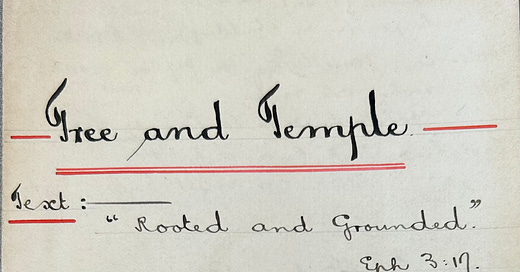 Tree and Temple
Text:
"Rooted and Grounded."
Eph 3:17.